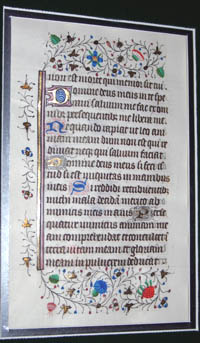 non est i morte qui memor sit tui
Domine deus meus in te spe
raui saluum me fac ex om
nibz persequentibz me libera me
Nequando rapiat ut leo ani
mam meam dum non est qui re
dimat neqz qui saluum faciat
Domine deus meus si feci is
tud si est iniquitas in manibus
meis Si reddidi retribuentibz
michi mala decidā merito ab i
nimicis meis inanis Perse
quatur inimicus animam me
am et comprehendat et conculcet i
terra uitam meam et gloriam
meam in puluerem deducat